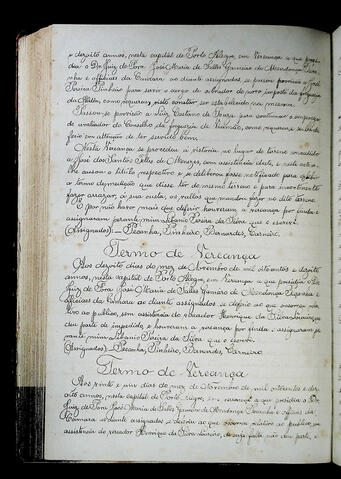 e dezoito annos, nesta capital de Porto Alegre, em Vereança a que presi-
dia o Dr. Juiz de Fora José Maria de Salles Gameiro de Mendonça Peça-
nha e officiaes da Camara ao diante assignados, se passou provisão a José
Pereira Pinheiro para servir o cargo de cobrador do novo imposto da freguezia
da Aldêa, como requereu, visto constar ser estabelecido na mesma.
Passou-se provisão a Luiz Caetano de Souza para continuar o emprego
de avaliador do Conselho da freguezia de Viamão, como requereu e se lhe de-
ferio em attenção de ter servido bem.
Nesta Vereança se procedeu a vistoria no lugar do terreno concedido
a José dos Santos Telles de Menezes, com assistencia deste, e neste acto se
lhe cassou o titulo respectivo e se deliberou fosse notificado para assignar
o termo de que disse ter do mesmo terreno e para incontinente
fazer arrazar, á sua custa, os vallos que mandou fazer no dito terreno.
E por não haver mais que deferir, houveram a vereança por finda e
assignaram perante mim Libanio Pereira da Silva que o escrevi.
(Assignados) :- Peçanha, Pinheiro, Bernardes, Carneiro.
Termo de Vereança
Aos dezoito dias do mez de Novembro de mil oitocentos e dezoito
annos, nesta capital de Porto Alegre, em Vereança a que presidia o Dr.
Juiz de Fora José Maria de Salles Gameiro de Mendonça Peçanha e
officiaes da Camara ao diante assignados, se deferio ao que occorreu rela-
tivo ao publico, sem assistencia do vereador Henrique da Silva Loureiro, que
deu parte de impedido, e houveram a vereança por finda e assignaram pe-
rante mim Libanio Pereira da Silva que o escrevi.
(Assignados) :- Peçanha, Pinheiro, Bernardes, Carneiro
Termo de Vereança
Aos vinte e um dias do mez de Novembro de mil oitocentos e de-
zoito annos, nesta capital de Porto Alegre, em vereança a que presidia o Dr.
Juiz de Fora José Maria de Salles Gameiro de Mendonça Peçanha e officiaes da
Camara ao diante assignados se deferio ao que occorreu relativo ao publico, sem
assistencia do vereador Henrique da Silva Loureiro, de cuja falta não deu parte, e